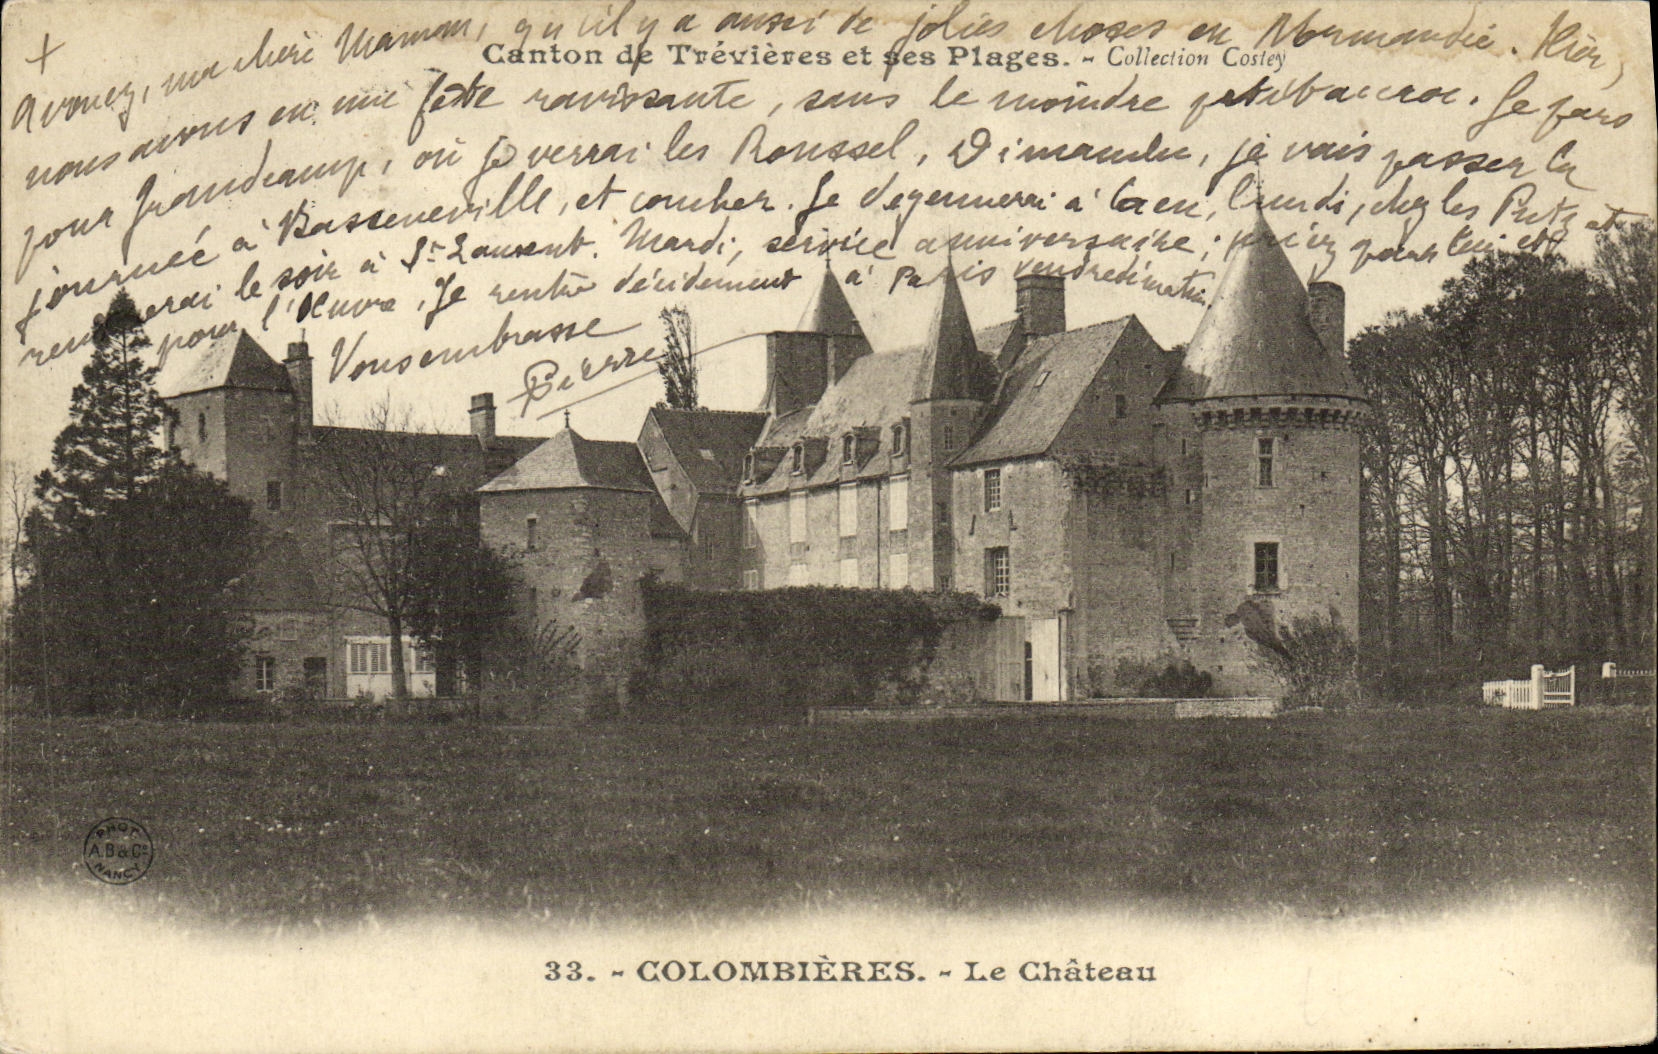 +
Avouez, ma chère Maman, qu'il y a aussi de jolies choses en Normandie. Hier,
Canton de Trévières et ses Plages. - Collection Costey
nous avons eu une fête ravissante, sans le moindre petit baccroc. Je pars
pour Grandcamp, où je verrai les Roussel, Dimanche, je vais passer la
journée à Basseneville, et coucher. Je déjeunerai à Caen, lundi, chez les et
rentrerai le soir à St Laurent. Mardi, service anniversaire; priez pour lui et
pour l'Œuvre. Je rentre décidément à Paris vendredi matin.
Vous embrasse
Pierre
PHOT.
A.B & Cie
NANCY
33. - COLOMBIÈRES. - Le Château